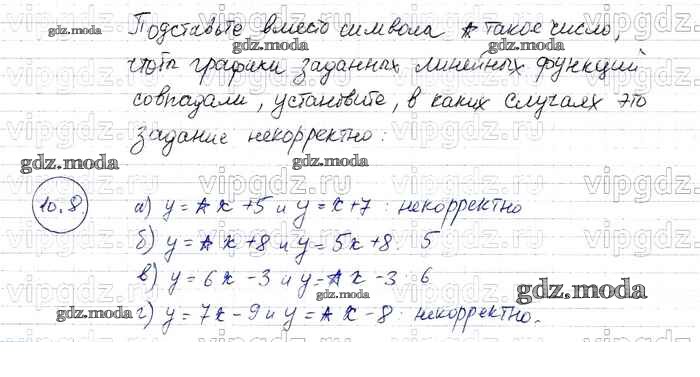 Подставьте вместо символа * такое число,
чтобы графики заданных линейных функций
совпадали, установите, в каких случаях это
задание некорректно:
10.8 а) y = * x + 5 и y = x + 7 : некорректно
б) y = * x + 8 и y = 5x + 8 : 5
в) y = 6x - 3 и y = * x - 3 : 6
г) y = 7x - 9 и y = * x - 8 : некорректно.
gdz.moda
vipgdz.ru